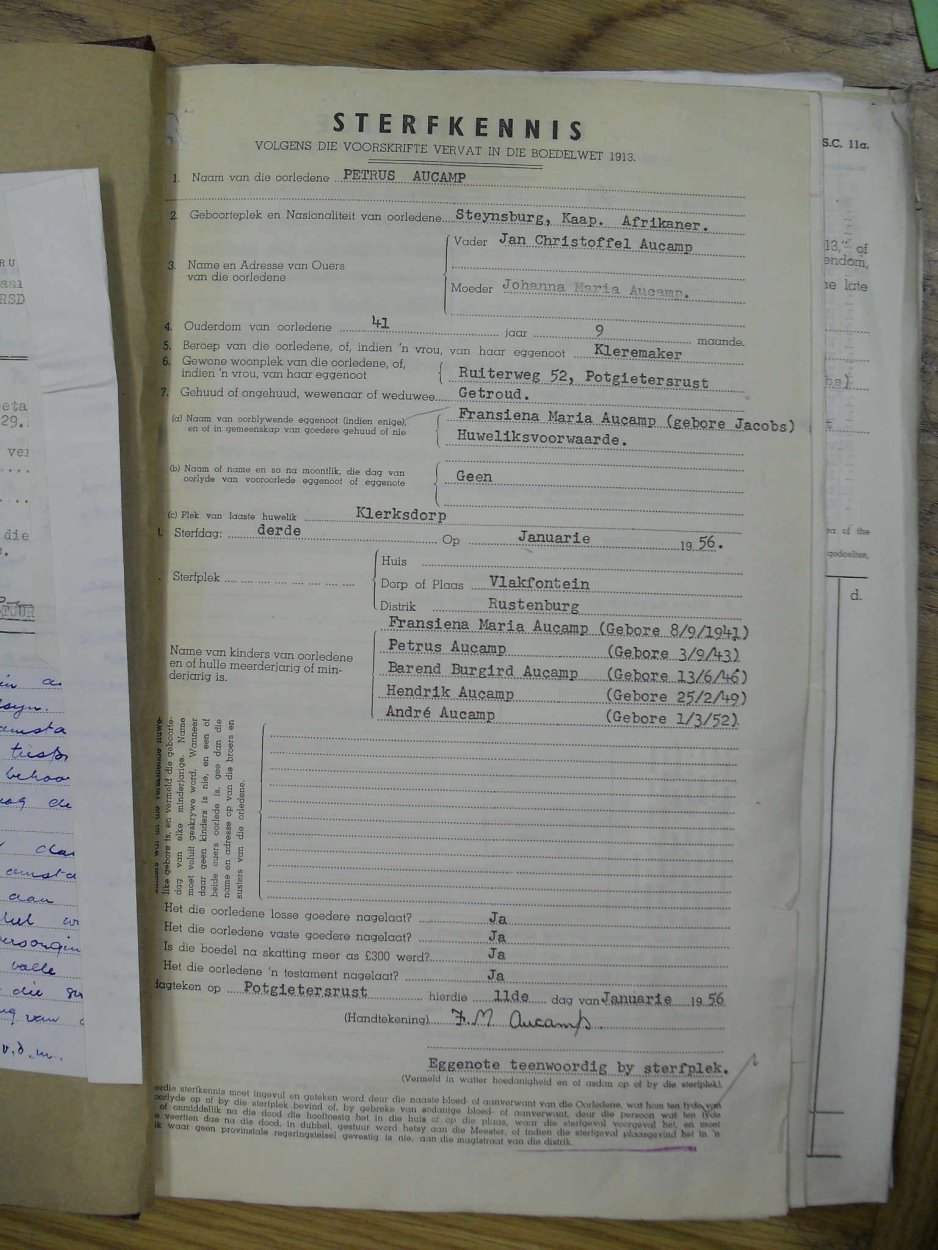 STERFKENNIS
VOLGENS DIE VOORSKRIFTE VERVAT IN DIE BOEDELWET 1913.
1. Naam van die oorledene PETRUS AUCAMP
2. Geboorteplek en Nasionaliteit van oorledene Steynsburg, Kaap. Afrikaner.
3. Name en Adresse van Ouers van die oorledene
Vader Jan Christoffel Aucamp
Moeder Johanna Maria Aucamp.
4. Ouderdom van oorledene 41 jaar 9 maande.
5. Beroep van die oorledene, of, indien 'n vrou, van haar eggenoot Kleremaker
6. Gewone woonplek van die oorledene, of,
indien 'n vrou, van haar eggenoot Ruiterweg 52, Potgietersrust
7. Gehuud of ongehuud, wewenaar of weduwee Getroud.
(a) Naam van oorblywende eggenoot (indien enige),
en of in gemeenskap van goedere gehuud of nie
Fransiena Maria Aucamp (gebore Jacobs)
Huweliksvoorwaarde.
(b) Naam of name en so na moontlik, die dag van
oorlyde van vooroorlede eggenoot of eggenote
Geen
(c) Plek van laaste huwelik Klerksdorp
Sterfdag: derde Op Januarie 19 56.
Sterfplek
Huis
Dorp of Plaas Vlakfontein
Distrik Rustenburg
Name van kinders van oorledene
en of hulle meerderjarig of min-
derjarig is.
Fransiena Maria Aucamp (Gebore 8/9/1941)
Petrus Aucamp (Gebore 3/9/43)
Barend Burgird Aucamp (Gebore 13/6/46)
Hendrik Aucamp (Gebore 25/2/49)
André Aucamp (Gebore 1/3/52)
like gebore is, en vermeld die geboorte-
dag van elke minderjarige. Name
moet voluit geskrywe word. Wanneer
daar geen kinders is nie, en een of
beide ouers oorlede is, gee dan die
name en adresse op van die broers en
susters van die orledene.
Het die oorledene losse goedere nagelaat? Ja
Het die oorledene vaste goedere nagelaat? Ja
Is die boedel na skatting meer as £300 werd? Ja
Het die oorledene 'n testament nagelaat? Ja
dagteken op Potgietersrust hierdie 11de dag van Januarie 19 56
(Handtekening) F.M Aucamp.
Eggenote teenwoordig by sterfplek.
(Vermeld in watter hoedanigheid en of asdan op of by die sterfplek).
sterfkennis moet ingevul en geteken word deur die naaste bloed- of aanverwant van die Oorledene, wat hom ten tyde van
oorlyde op of by die sterfplek bevind of, by gebreke van sodanige bloed- of aanverwant, deur die persoon wat ten tyde
of onmiddellik na die dood die hooftoesig het in die huis of op die plaas, waar die sterfgeval voorgeval het, en moet
veertien dae na die dood, in dubbel, gestuur word hetsy aan die Meester, of indien die sterfgeval plaasgevind het in 'n
waar geen provinsiale regeringstelsel gevestig is nie, aan die magistraat van die distrik.
S.C. 11a.
13," of
endom,
late
of the
gedeeltes,
d.
RSD
29.
die
amsta
behoo
nog
amsta
aan
volle
die
van
v.d.m.